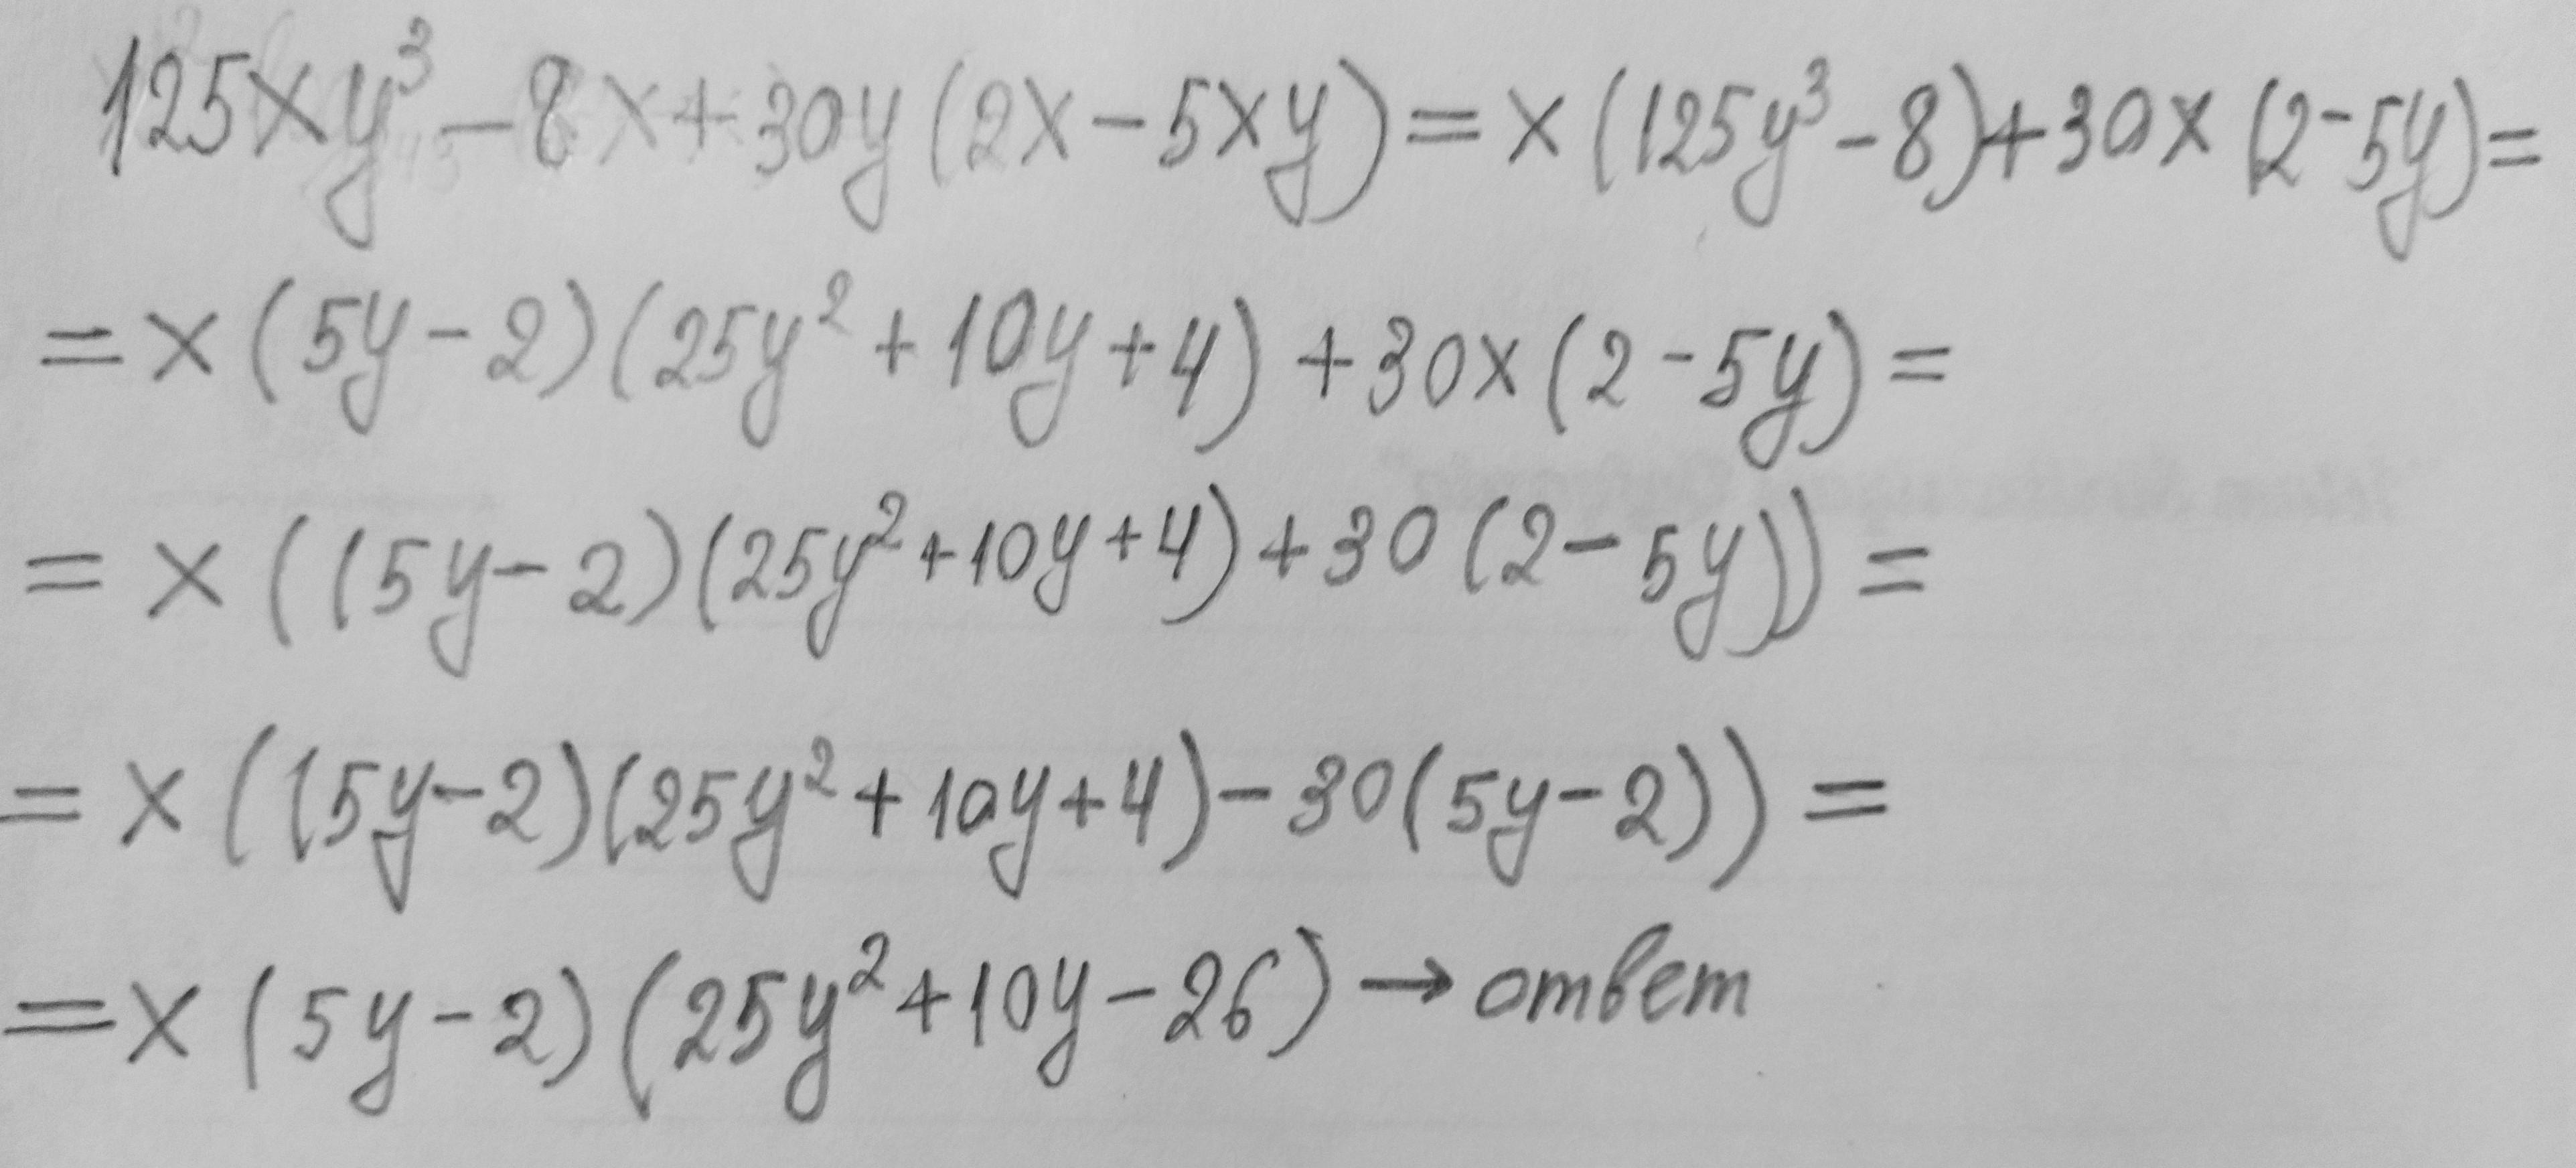 125xy³ - 8x + 30y(2x - 5xy) = x(125y³ - 8) + 30x(2 - 5y) =
= x(5y - 2)(25y² + 10y + 4) + 30x(2 - 5y) =
= x((5y - 2)(25y² + 10y + 4) + 30(2 - 5y)) =
= x((5y - 2)(25y² + 10y + 4) - 30(5y - 2)) =
= x(5y - 2)(25y² + 10y - 26) → ответ